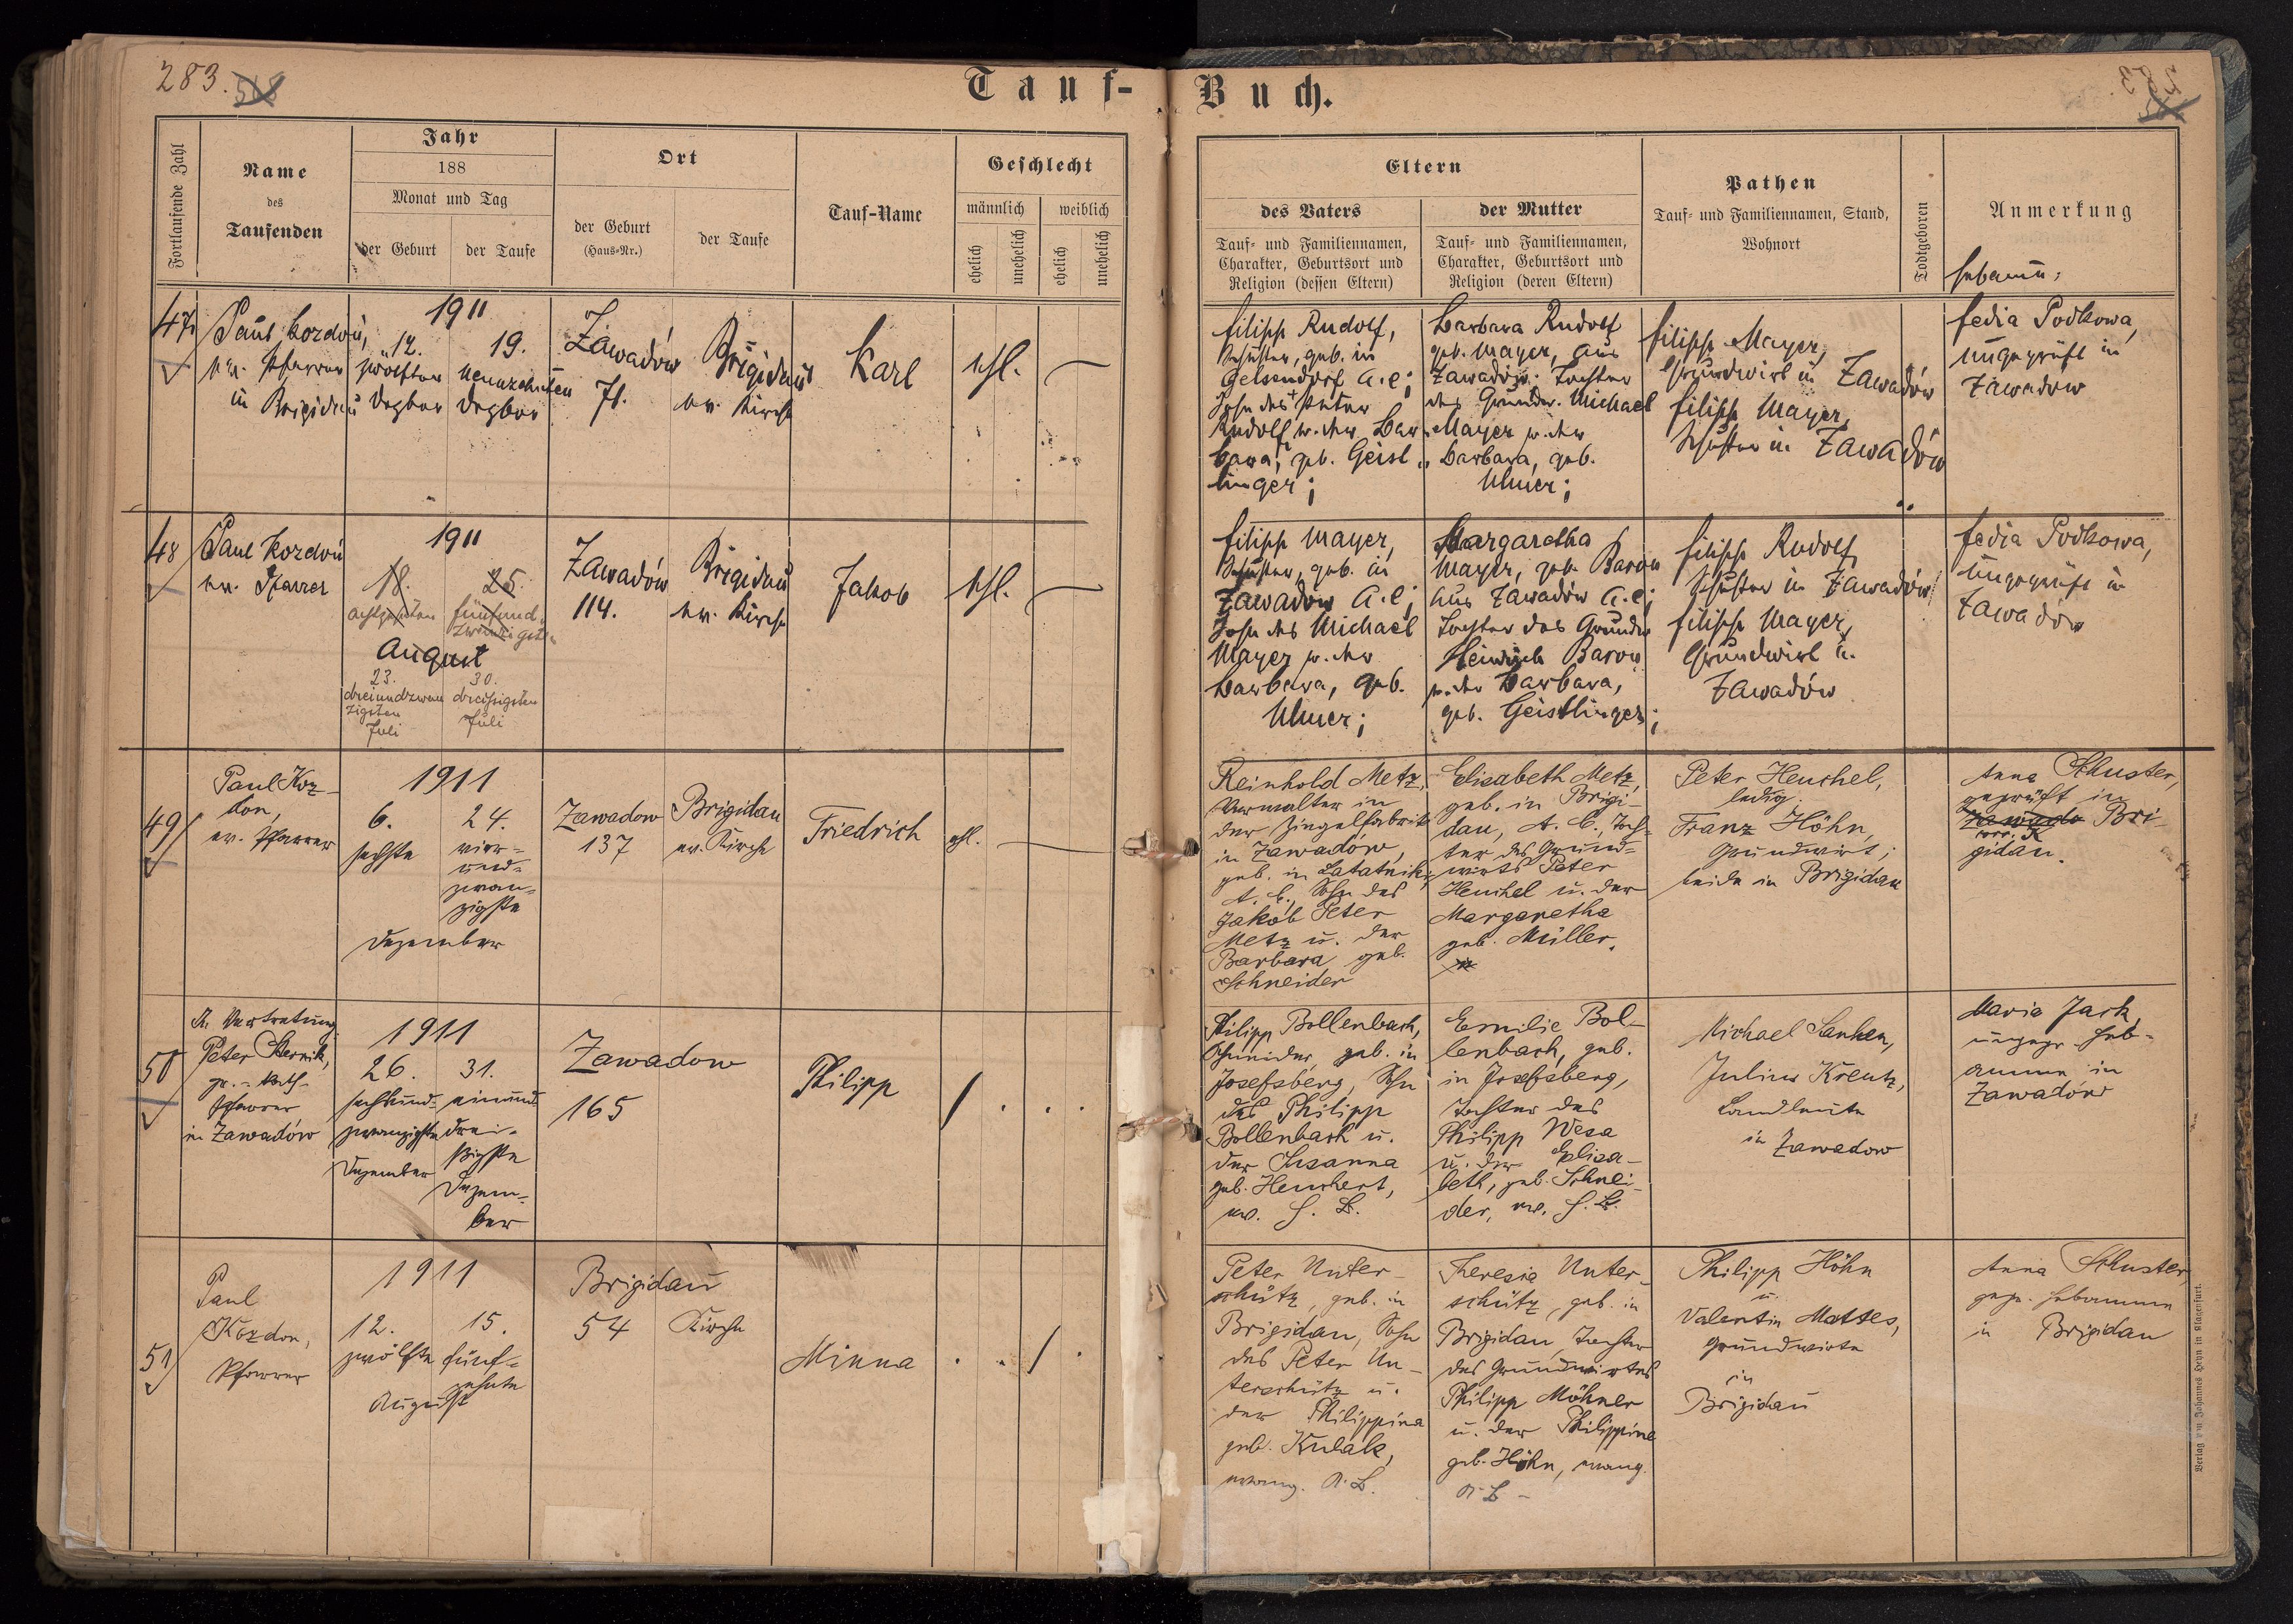 283.
Tauf-
Buch.
Fortlaufende Zahl
Name
des
Taufenden
Jahr
188
Monat und Tag
der Geburt
der Taufe
Ort
der Geburt
(Haus-Nr.)
der Taufe
Tauf-Name
Geschlecht
männlich
weiblich
ehelich
unehelich
ehelich
unehelich
Eltern
des Vaters
Tauf- und Familiennamen,
Charakter, Geburtsort und
Religion (dessen Eltern)
der Mutter
Tauf- und Familiennamen,
Charakter, Geburtsort und
Religion (deren Eltern)
Pathen
Tauf- und Familiennamen, Stand,
Wohnort
Todtgeboren
Anmerkung
47
Paul Kozdoń,
ev. Pfarrer
in Brigidau
1911
12.
zwölften
Dezber
19.
neunzehnten
Dezber
Zawadów
71.
Brigidau
ev. Kirche
Karl
ehl.
Filipp Rudolf,
Schuster, geb. in
Gelsendorf A.C;
Sohn des Peter
Rudolf u. der Bar-
bara, geb. Geisl
inger;
Barbara Rudolf
geb. Mayer, aus
Zawadów; Tochter
des Grundw. Michael
Mayer u. der
Barbara, geb.
Ulmer;
Filipp Mayer,
Grundwirt in Zawadów
Filipp Mayer,
Schuster in Zawadów
Fedia Podkowa,
ungeprüft in
Zawadow
48
Paul Kozdoń
ev. Pfarrer
1911
18.
achtzehnten
25.
fünfund
zwanzigsten
August
23.
dreiundzwan
zigsten
Juli
30.
dreißigsten
Juli
Zawadów
114.
Brigidau
ev. Kirche
Jakob
ehl.
Filipp Mayer,
Schuster, geb. in
Zawadów A.C;
Sohn des Michael
Mayer u. der
Barbara, geb.
Ulmer;
Margaretha
Mayer, geb. Baron
aus Zawadów A.C;
Tochter des Grundw
Heinrich Baron
u. der Barbara,
geb. Geistlinger;
Filipp Rudolf,
Schuster in Zawadów
Filipp Mayer,
Grundwirt in
Zawadów
Fedia Podkowa,
ungeprüft in
Zawadów
49
Paul Koz-
don,
ev. Pfarrer
1911
6.
sechste
24.
vier-
und-
zwan-
zigste
Dezember
Zawadow
137
Brigidau
ev. Kirche
Friedrich
ehl.
Reinhold Metz,
Verwalter in
der Ziegelfabrik
in Zawadów,
geb. in
A. C., Sohn des
Jakob Peter
Metz u. der
Barbara geb.
Schneider
Elisabeth Metz,
geb. in Brigi-
dau, A. C., Toch-
ter des Grund-
wirts Peter
Henchel u. der
Margaretha
geb. Müller.
Peter Henchel,
ledig.
Franz Höhn,
Grundwirt;
beide in Brigidau
Anna Schuster,
geprüft in
Zawado Bri-
gidau.
50
In Vertretung
Peter
gr.-kath.
Pfarrer
in Zawadów
1911
26.
sechsund-
zwanzigste
Dezember
31.
einund-
drei-
ßigste
Dezem-
ber
Zawadow
165
Philipp
Philipp Bollenbach,
Schneider, geb. in
Josefsberg, Sohn
des Philipp
Bollenbach u.
der Susanna
geb. Henchert,
ev. H. B.
Emilie Bol-
lenbach, geb.
in Josefsberg,
Tochter des
Philipp Wesa
u. der Elisa-
beth, geb. Schnei-
der, ev. H. B.
Michael Lanken,
Julius Kreutz,
Landleute
in Zawadow
Maria Jack,
ungepr. Heb-
amme in
Zawadów
51
Paul
Kozdon,
Pfarrer
1911
12.
zwölfte
15.
fünf-
zehnte
August
Brigidau
54
Kirche
Minna
Peter Unter-
schütz, geb. in
Brigidau, Sohn
des Peter Un-
terschütz u.
der Philippina
geb. Kulak,
evang. A. B.
Theresia Unter-
schütz, geb. in
Brigidau, Tochter
des Grundwirtes
Philipp Möhner
u. der Philippine
geb. Höhn, evang.
A. B -
Philipp Höhn
u.
Valentin Mattes,
Grundwirte
in
Brigidau
Anna Schuster
gepr. Hebamme
in Brigidau
Verlag von Johannes Heyn in Klagenfurt.